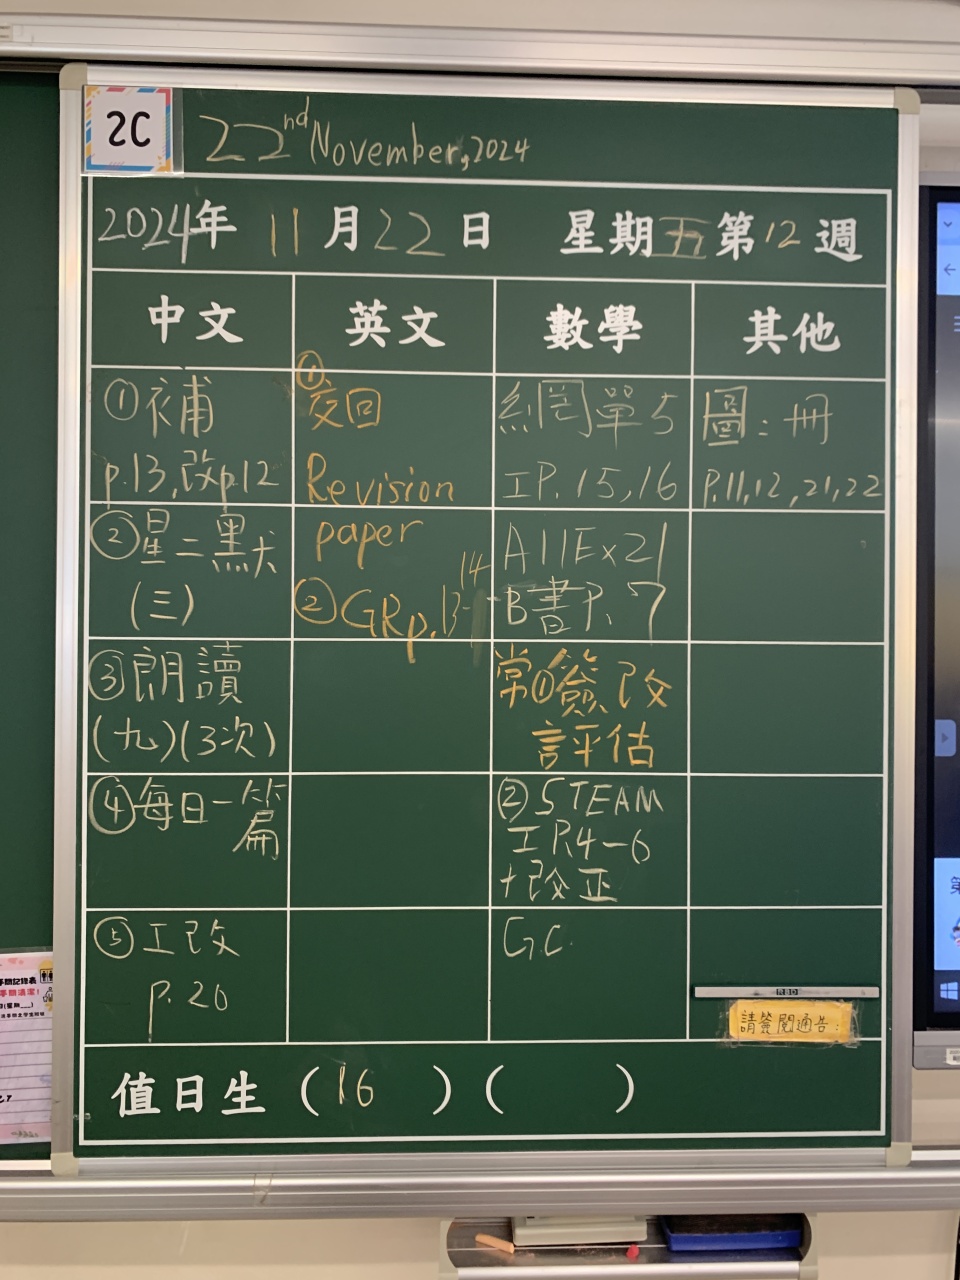 2C
22nd November, 2024
2024年 11月22日 星期五第12週
中文 英文 數學 其他
①補
p.13,改p.12
②星二默
(三)
③朗讀
(九)(3次)
④每日一篇
⑤工改
p.20
①交回
Revision
paper
②GRp.13-14
網單5
工P.15,16
A11Ex21
B書P.7
常①簽改
評估
②STEAM
工P.4-6
+改正
GC
圖:冊
P.11,12,21,22
RBD
請簽閱通告:
值日生 (16 ) ( )